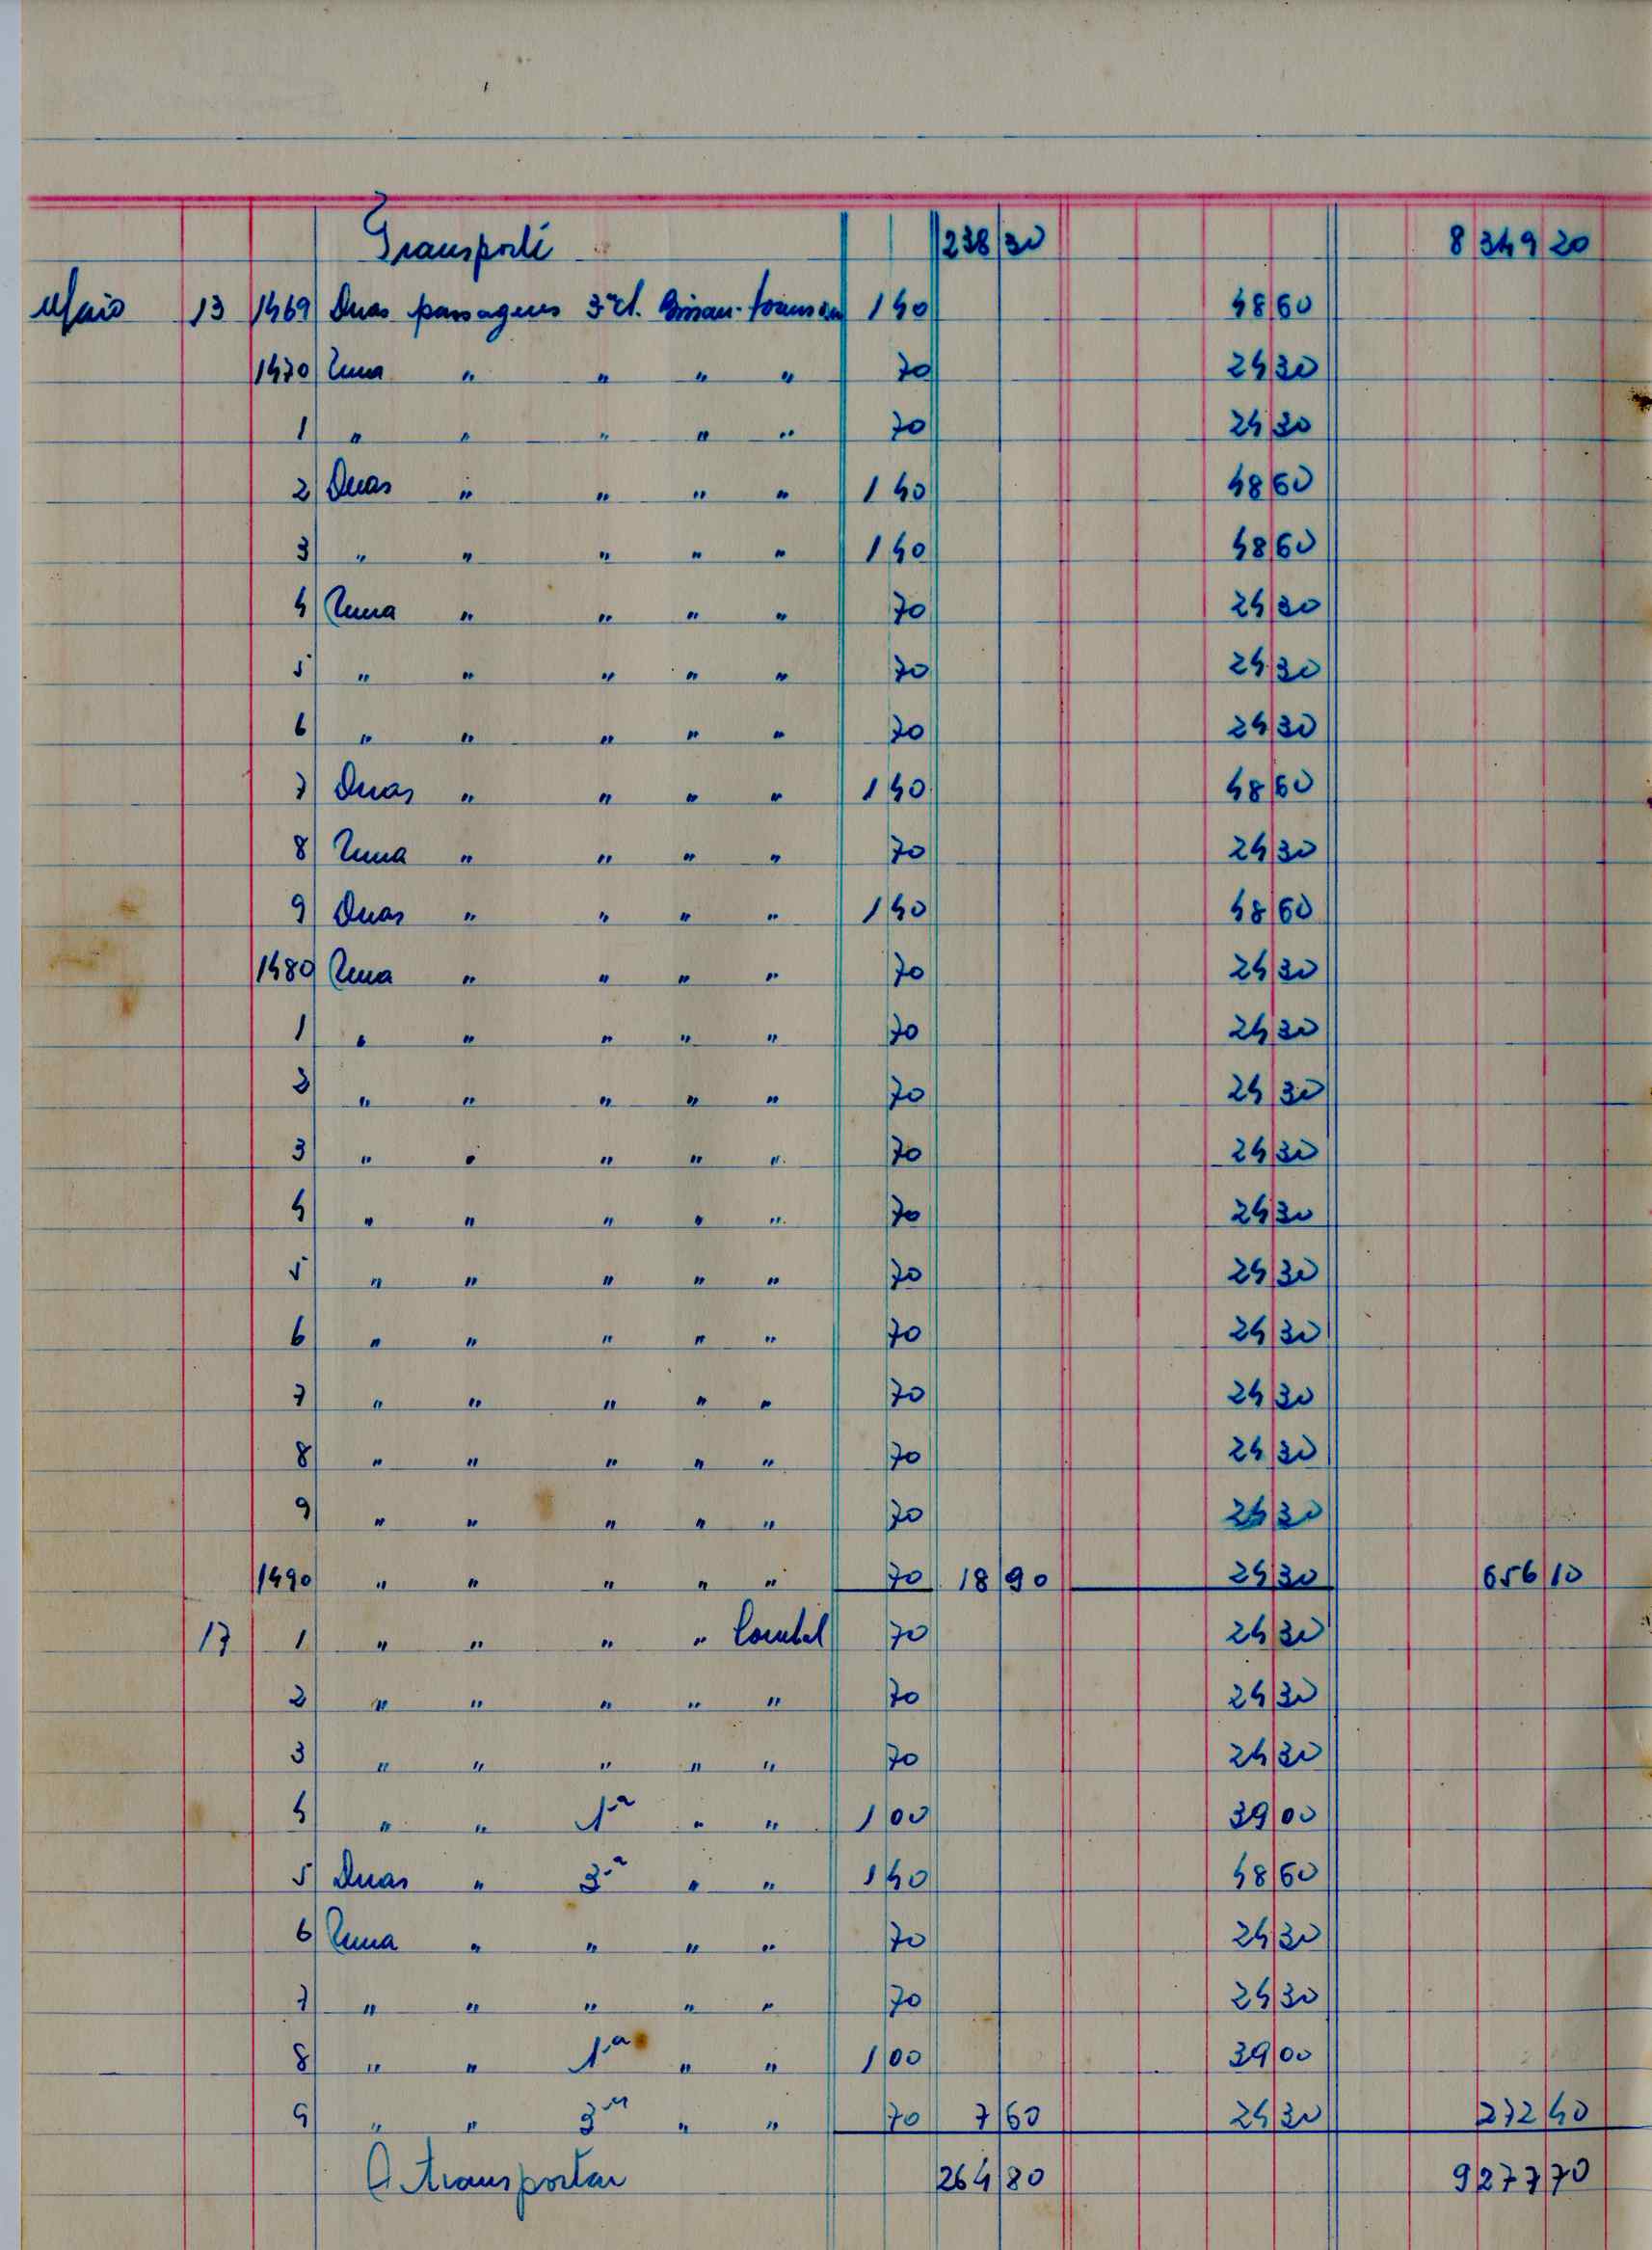 Transporte 238 30 8 349 20
Maio 13 1469 Duas passagens 3ª cl. Bissau- 1 40 48 60
1470 Uma " " " " 70 24 30
1 " " " " " 70 24 30
2 Duas " " " " 1 40 48 60
3 " " " " " 1 40 48 60
4 Uma " " " " 70 24 30
5 " " " " " 70 24 30
6 " " " " " 70 24 30
7 Duas " " " " 1 40 48 60
8 Uma " " " " 70 24 30
9 Duas " " " " 1 40 48 60
1480 Uma " " " " 70 24 30
1 " " " " " 70 24 30
2 " " " " " 70 24 30
3 " " " " " 70 24 30
4 " " " " " 70 24 30
5 " " " " " 70 24 30
6 " " " " " 70 24 30
7 " " " " " 70 24 30
8 " " " " " 70 24 30
9 " " " " " 70 24 30
1490 " " " " " 70 18 90 24 30 656 10
17 1 " " " " Corubal 70 24 30
2 " " " " " 70 24 30
3 " " " " " 70 24 30
4 " " 1ª " " 1 00 39 00
5 Duas " 3ª " " 1 40 48 60
6 Uma " " " " 70 24 30
7 " " " " " 70 24 30
8 " " 1ª " " 1 00 39 00
9 " " 3ª " " 70 7 60 24 30 272 40
A transportar 264 80 9 277 70